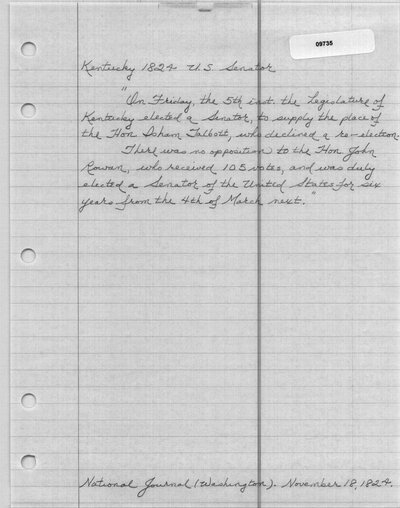 09735
Kentucky 1824 U.S. Senator
"On Friday, the 5th inst. the Legislature of
Kentucky elected a Senator, to supply the place of
the Hon Isham Talbott, who declined a re-election.
There was no opposition to the Hon John
Rowan, who received 105 votes, and was duly
elected a Senator of the United States for six
years from the 4th of March next."
National Journal (Washington). November 18, 1824.